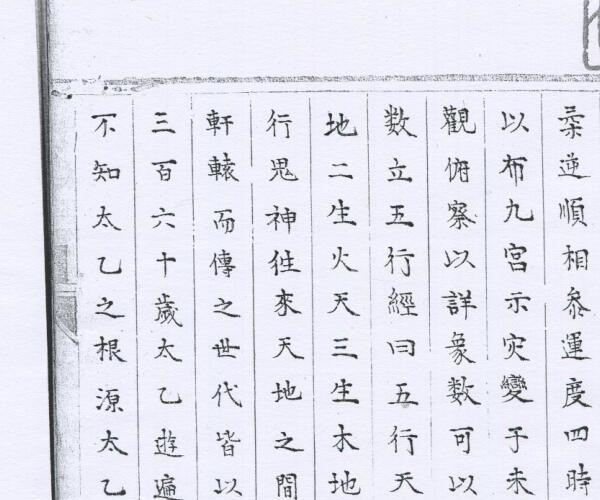 桒逆順相叅運度四時
以布九宮示灾變于未
觀俯察以詳象数可以
数立五行經曰五行天
地二生火天三生木地
行鬼神徃來天地之間
軒轅而傳之世代皆以
三百六十歲太乙遊遍
不知太乙之根源太乙